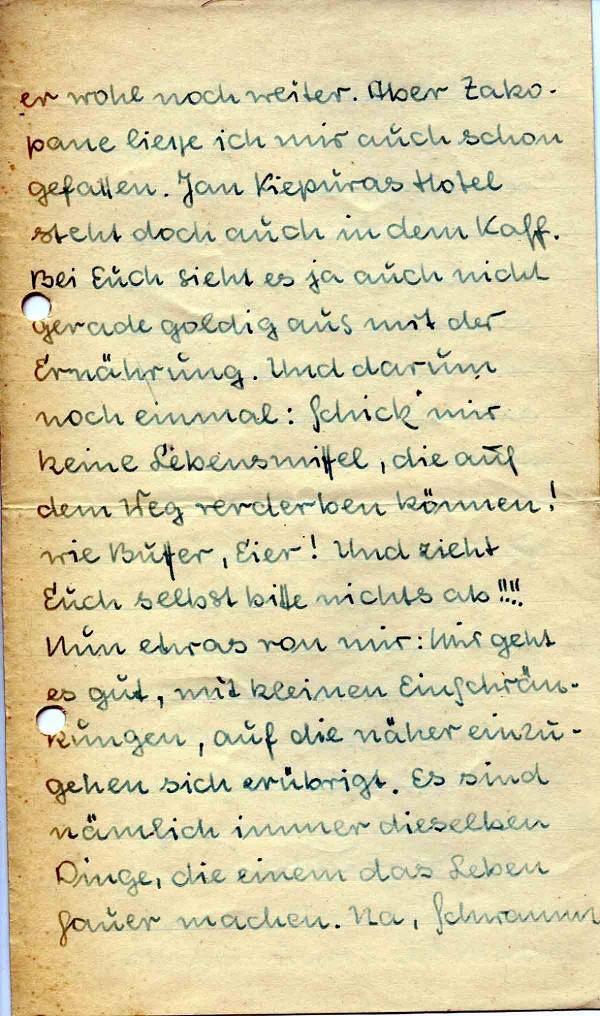 er wohl noch weiter. Aber Zako-
pane ließe ich mir auch schon
gefallen. Jan Kiepuras Hotel
steht doch auch in dem Kaff.
Bei Euch sieht es ja auch nicht
gerade goldig aus mit der
Ernährung. Und darum
noch einmal: Schick' mir
keine Lebensmittel, die auf
dem Weg verderben können!
wie Butter, Eier! Und zieht
Euch selbst bitte nichts ab!!!!
Nun etwas von mir: Mir geht
es gut, mit kleinen Einschrän-
kungen, auf die näher einzu-
gehen sich erübrigt. Es sind
nämlich immer dieselben
Dinge, die einem das Leben
sauer machen. Na, Schwamm